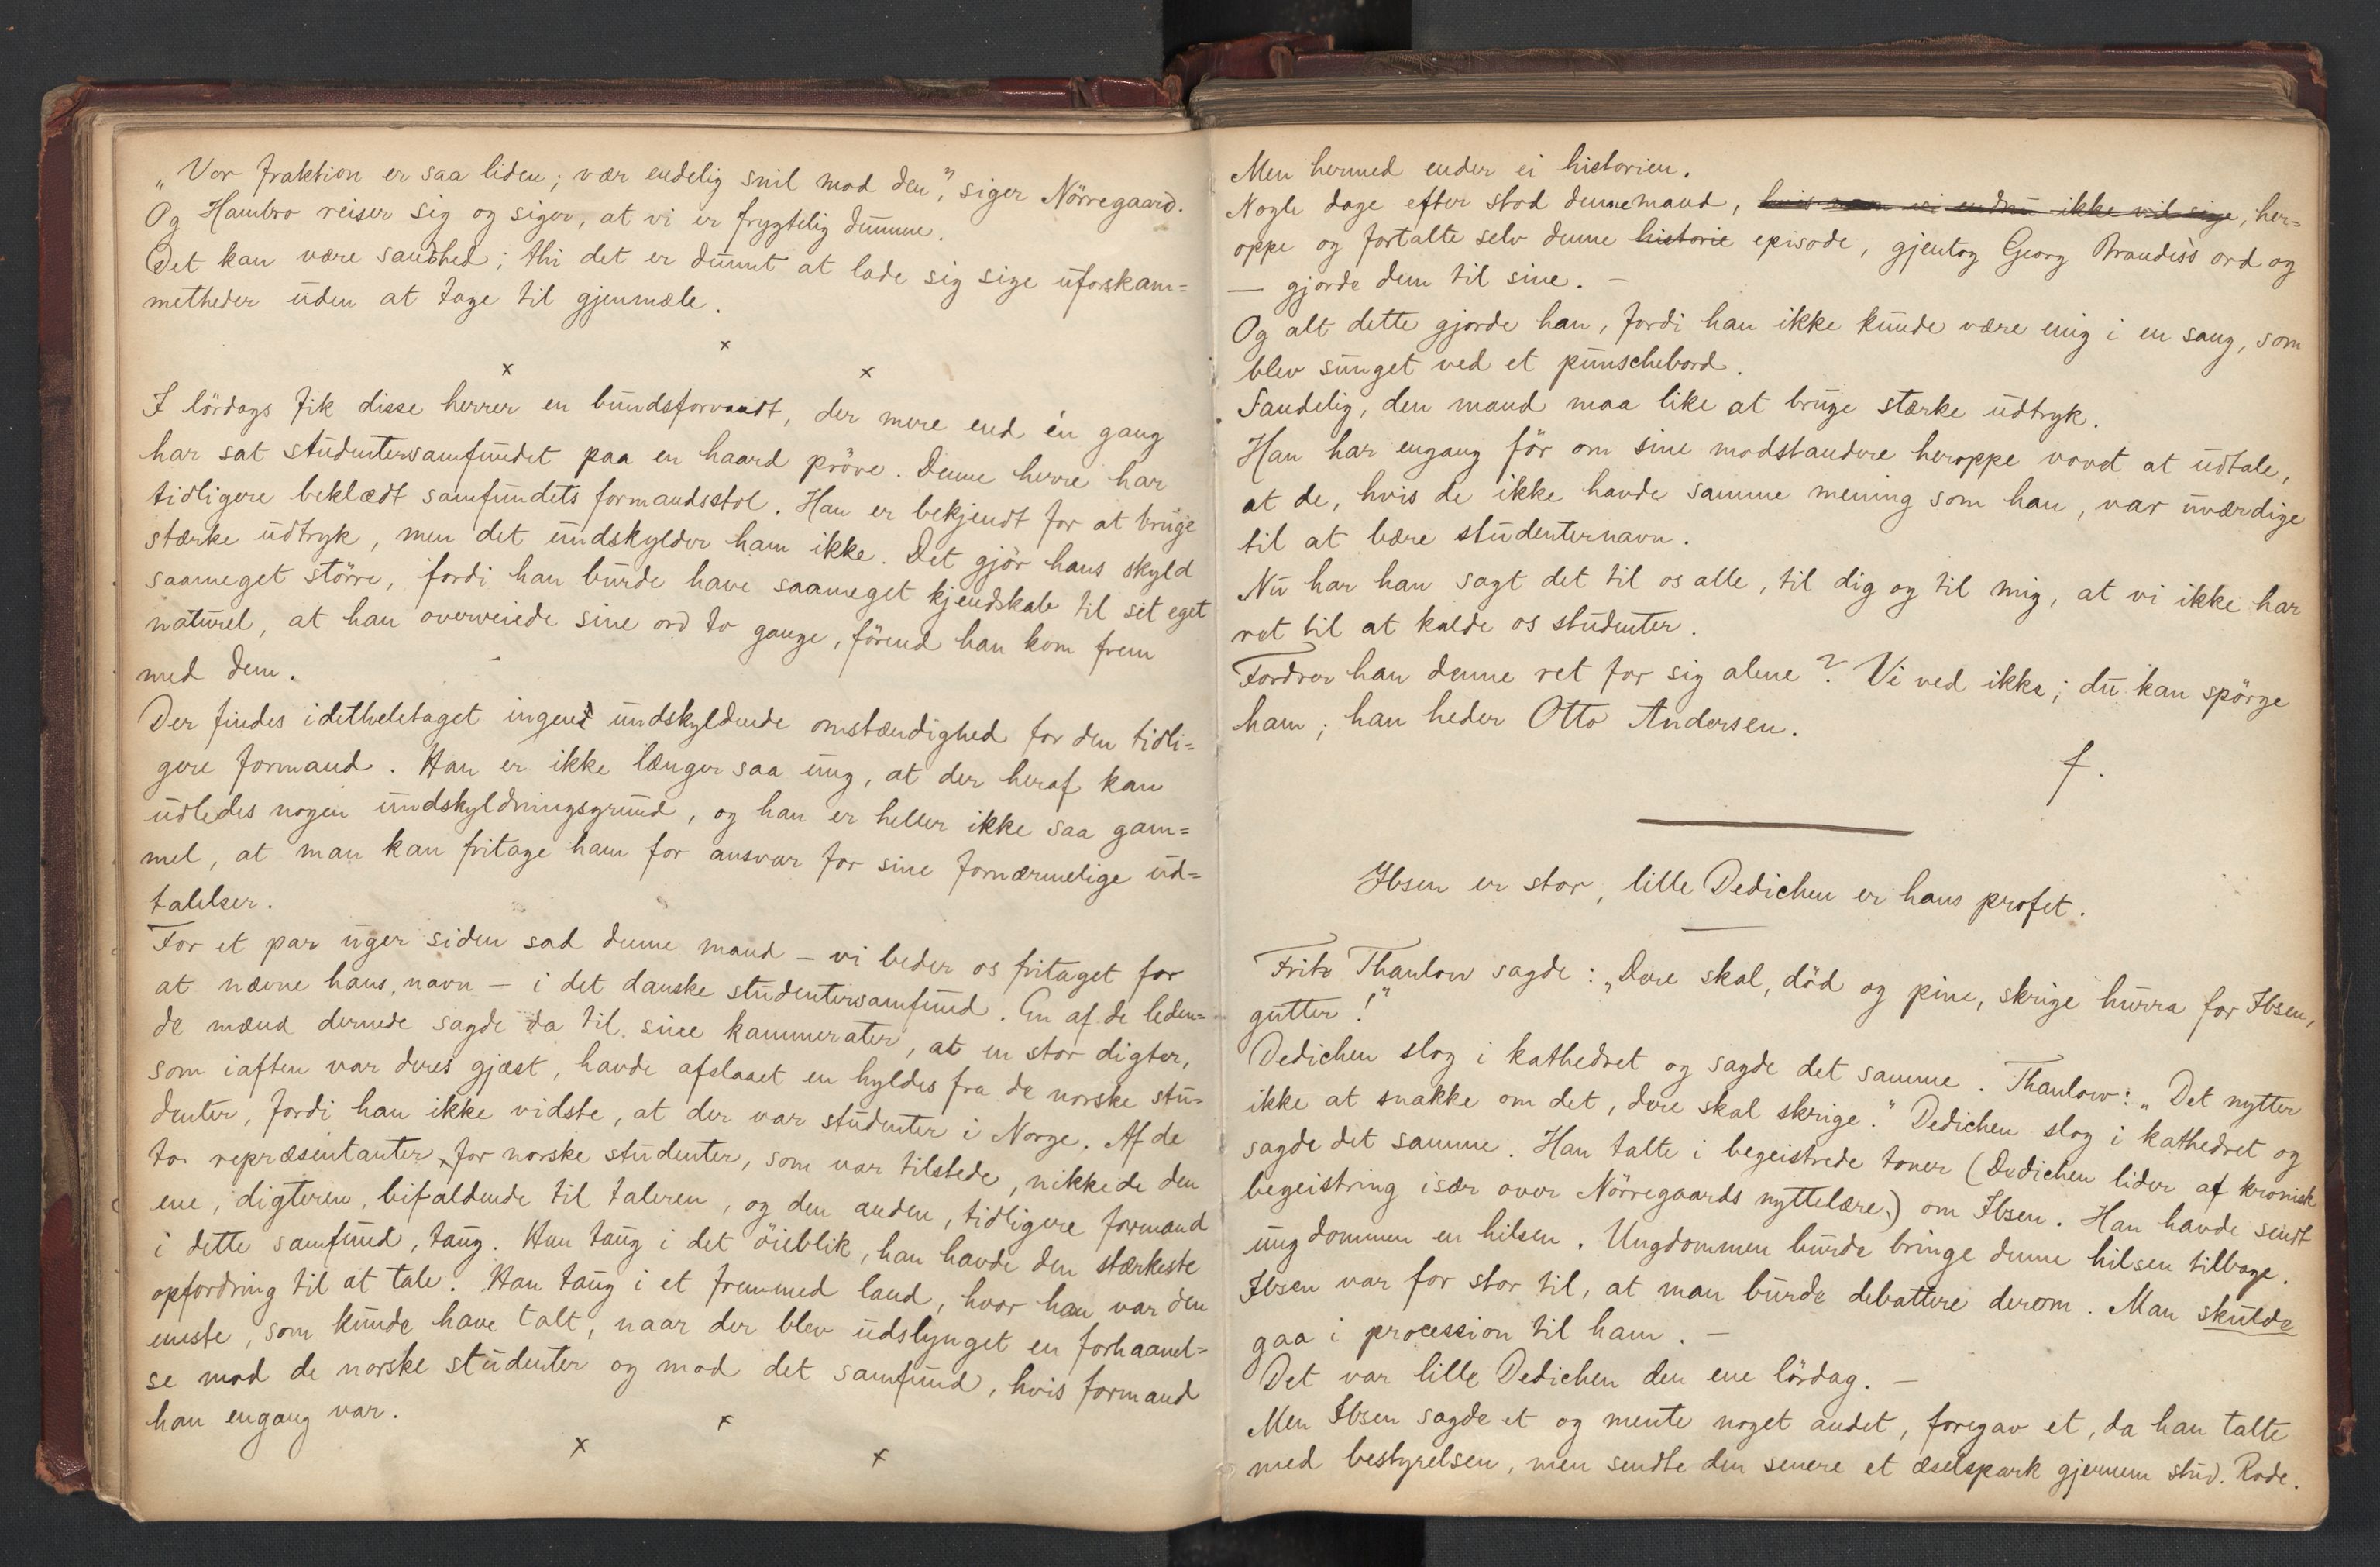 „Vor fraktion er saa liden; vær endelig snil mod den“, siger Nörregaard.
Og Hambro reiser sig og siger, at vi er frygtelig dumme.
Det kan være sandhed; thi det er dumt at lade sig sige uforskam=
metheder uden at tage til gjenmæle.
x x x
I lördags fik disse herrer en bundsforvandt, der mere end én gang
har sat studentersamfundet paa en haard pröve. Denne herre har
tidligere beklædt samfundets formandsstol. Han er bekjendt for at bruge
stærke udtryk, men det undskylder ham ikke. Det gjör hans skyld
saameget större, fordi han burde have saameget kjendskab til sit eget
naturel, at han overveiede sine ord to gange, förend han kom frem
med dem.
Der findes idetheletaget ingen undskyldende omstændighed for den tidli=
gere formand. Han er ikke længer saa ung, at der heraf kan
udledes nogen undskyldningsgrund, og han er heller ikke saa gam=
mel, at man kan fritage ham for ansvar for sine fornærmelige ud=
talelser.
For et par uger siden sad denne mand – vi beder os fritaget for
at nævne hans navn – i det danske studentersamfund. En af de leden=
de mænd dernede sagde da til sine kammerater, at en stor digter,
som iaften var deres gjæst, havde afslaaet en hyldes fra de norske stu=
denter, fordi han ikke vidste, at der var studenter i Norge. Af de
to repræsentanter for norske studenter, som var tilstede, nikkede den
ene, digteren, bifaldende til taleren, og den anden, tidligere formand
i dette samfund, taug. Han taug i det öieblik, han havde den stærkeste
opfordring til at tale. Han taug i et fremmed land, hvor han var den
eneste, som kunde have talt, naar der blev udslynget en forhaanel=
se mod de norske studenter og mod det samfund, hvis formand
han engang var.
x x x
Men hermed ender ei historien.
Nogle dage efter stod denne mand, hvis navn vi endnu ikke vil sige, her=
oppe og fortalte selv denne historie episode, gjentog Georg Brandes's ord og
— gjorde dem til sine. –
Og alt dette gjorde han, fordi han ikke kunde være enig i en sang, som
blev sunget ved et punschebord.
Sandelig, den mand maa like at bruge stærke udtryk.
Han har engang för om sine modstandere heroppe vovet at udtale,
at de, hvis de ikke havde samme mening som han, var uværdige
til at bære studenternavn.
Nu har han sagt det til os alle, til dig og til mig, at vi ikke har
ret til at kalde os studenter.
Fordrer han denne ret for sig alene? Vi ved ikke; du kan spörge
ham; han heder Otto Andersen.
f.
Ibsen er stor, lille Dedichen er hans profet.
Frits Thaulow sagde: „Dere skal, död og pine, skrige hurra for Ibsen,
gutter!“
Dedichen slog i kathedret og sagde det samme. Thaulow: „Det nytter
ikke at snakke om det, dere skal skrige.“ Dedichen slog i kathedret og
sagde det samme. Han talte i begeistrede toner (Dedichen lider af kronisk
begeistring især over Nörregaards nyttelære) om Ibsen. Han havde sendt
ungdommen en hilsen. Ungdommen burde bringe denne hilsen tilbage.
Ibsen var for stor til, at man burde debattere derom. Man skulde
gaa i procession til ham. –
Det var lille Dedichen den ene lördag. –
Men Ibsen sagde et og mente noget andet, foregav et, da han talte
med bestyrelsen, men sendte den senere et æselspark gjennem stud. Rode.